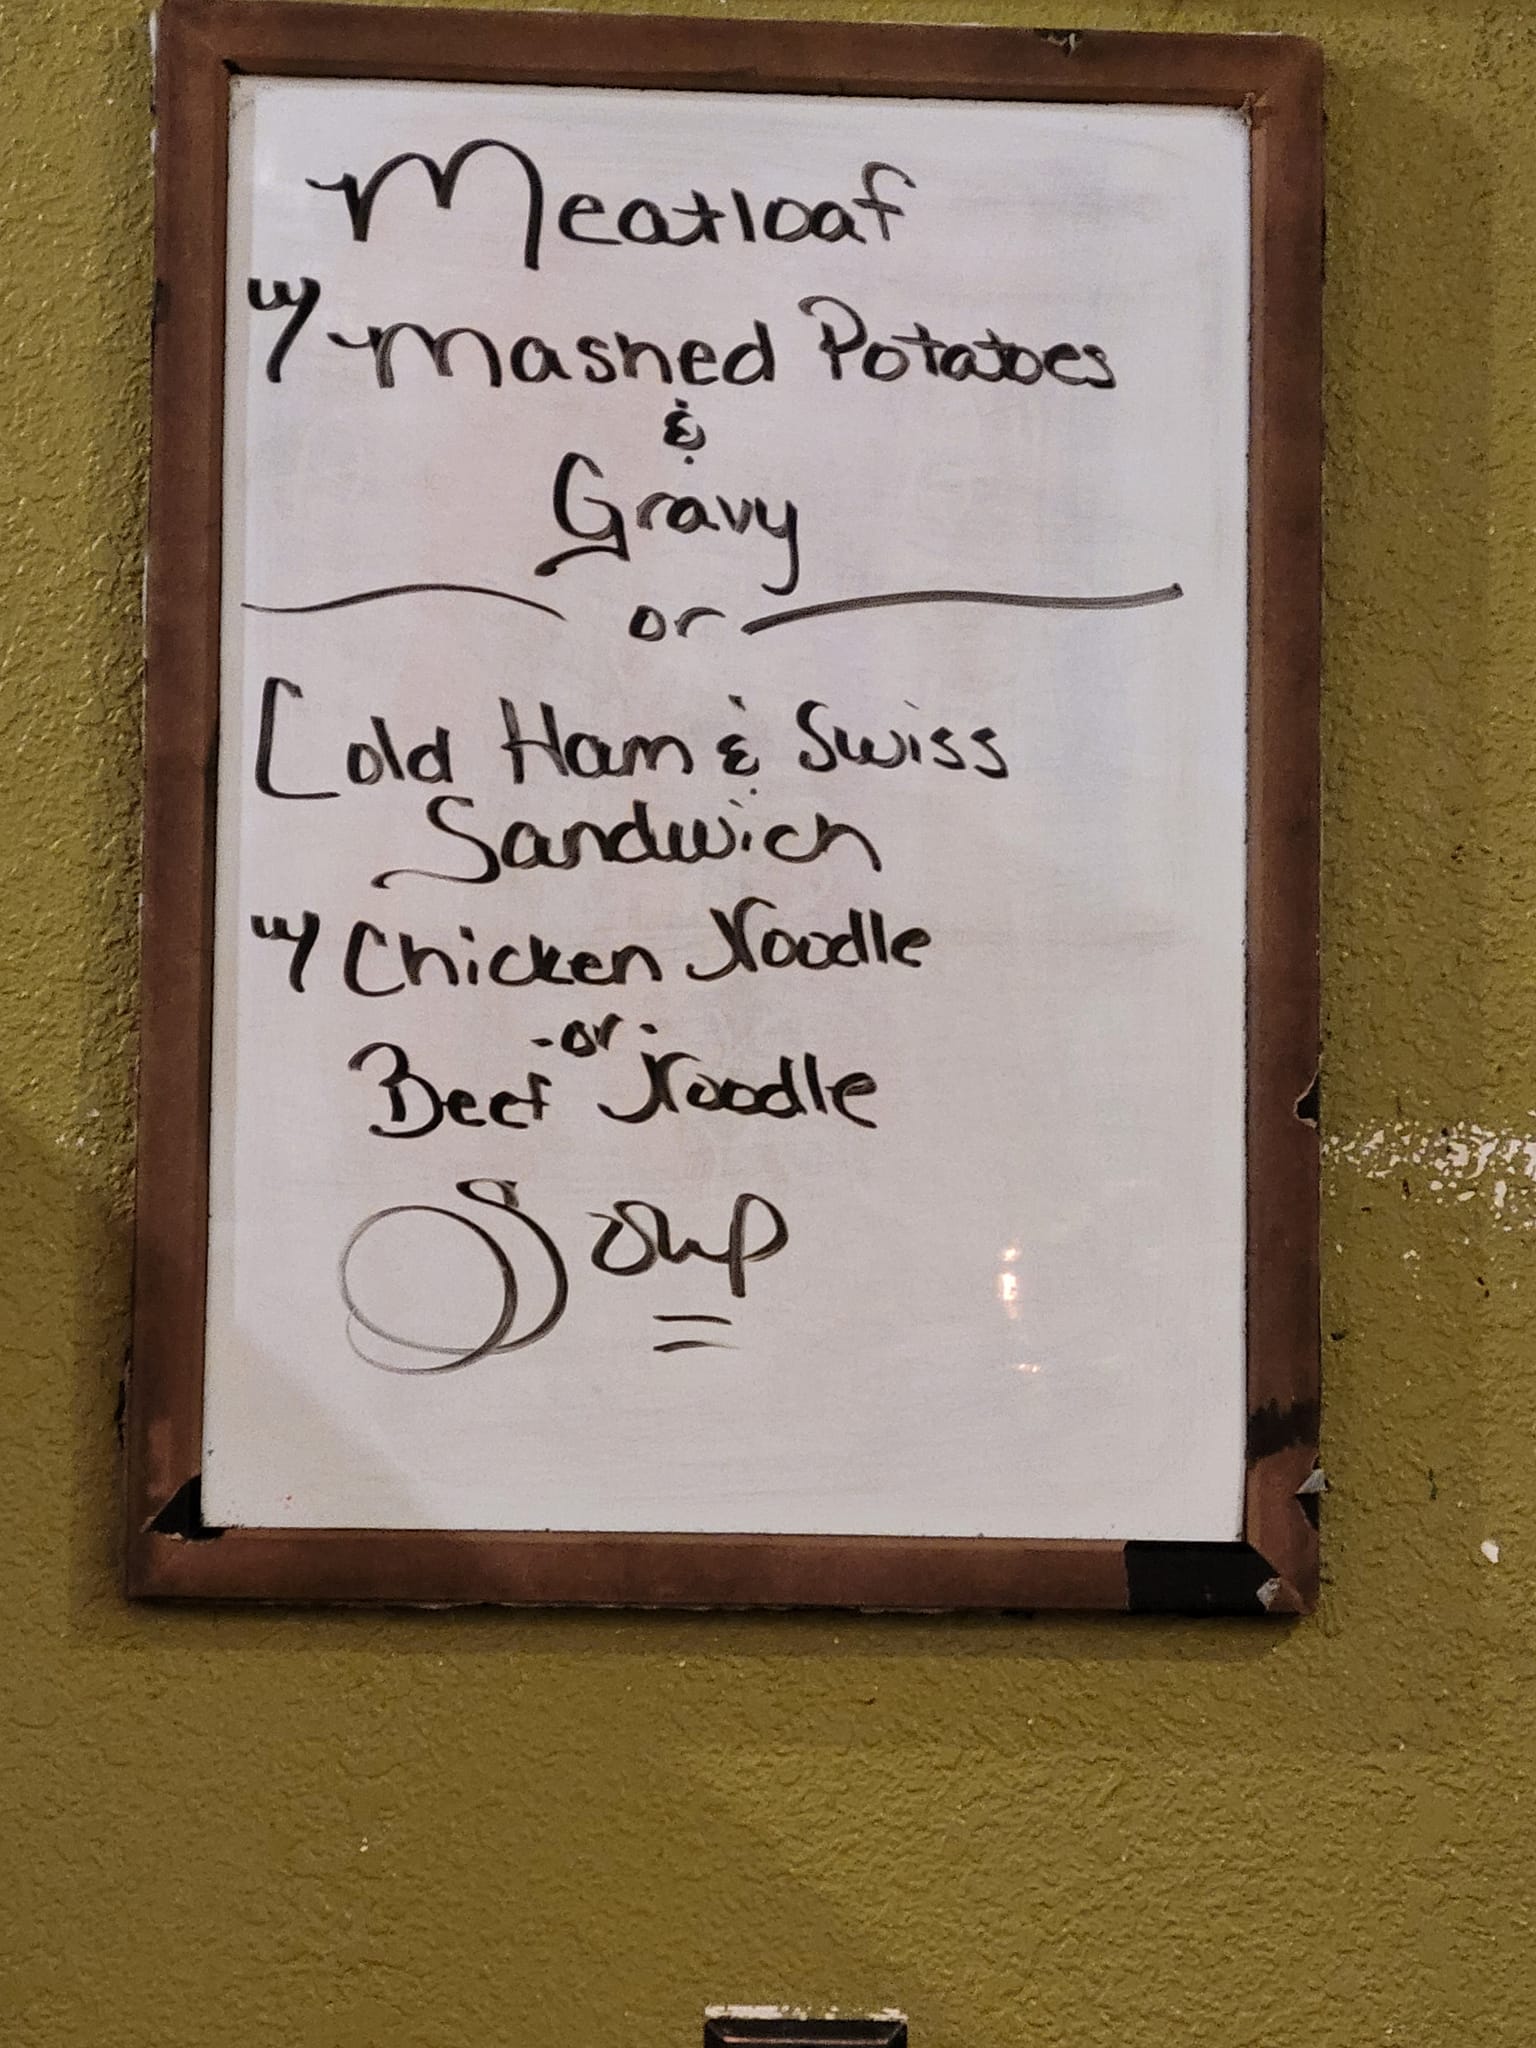 Meatloaf
w/ Mashed Potatoes
&
Gravy
or
Cold Ham & Swiss
Sandwich
w/ Chicken Noodle
-or-
Beef Noodle
Soup